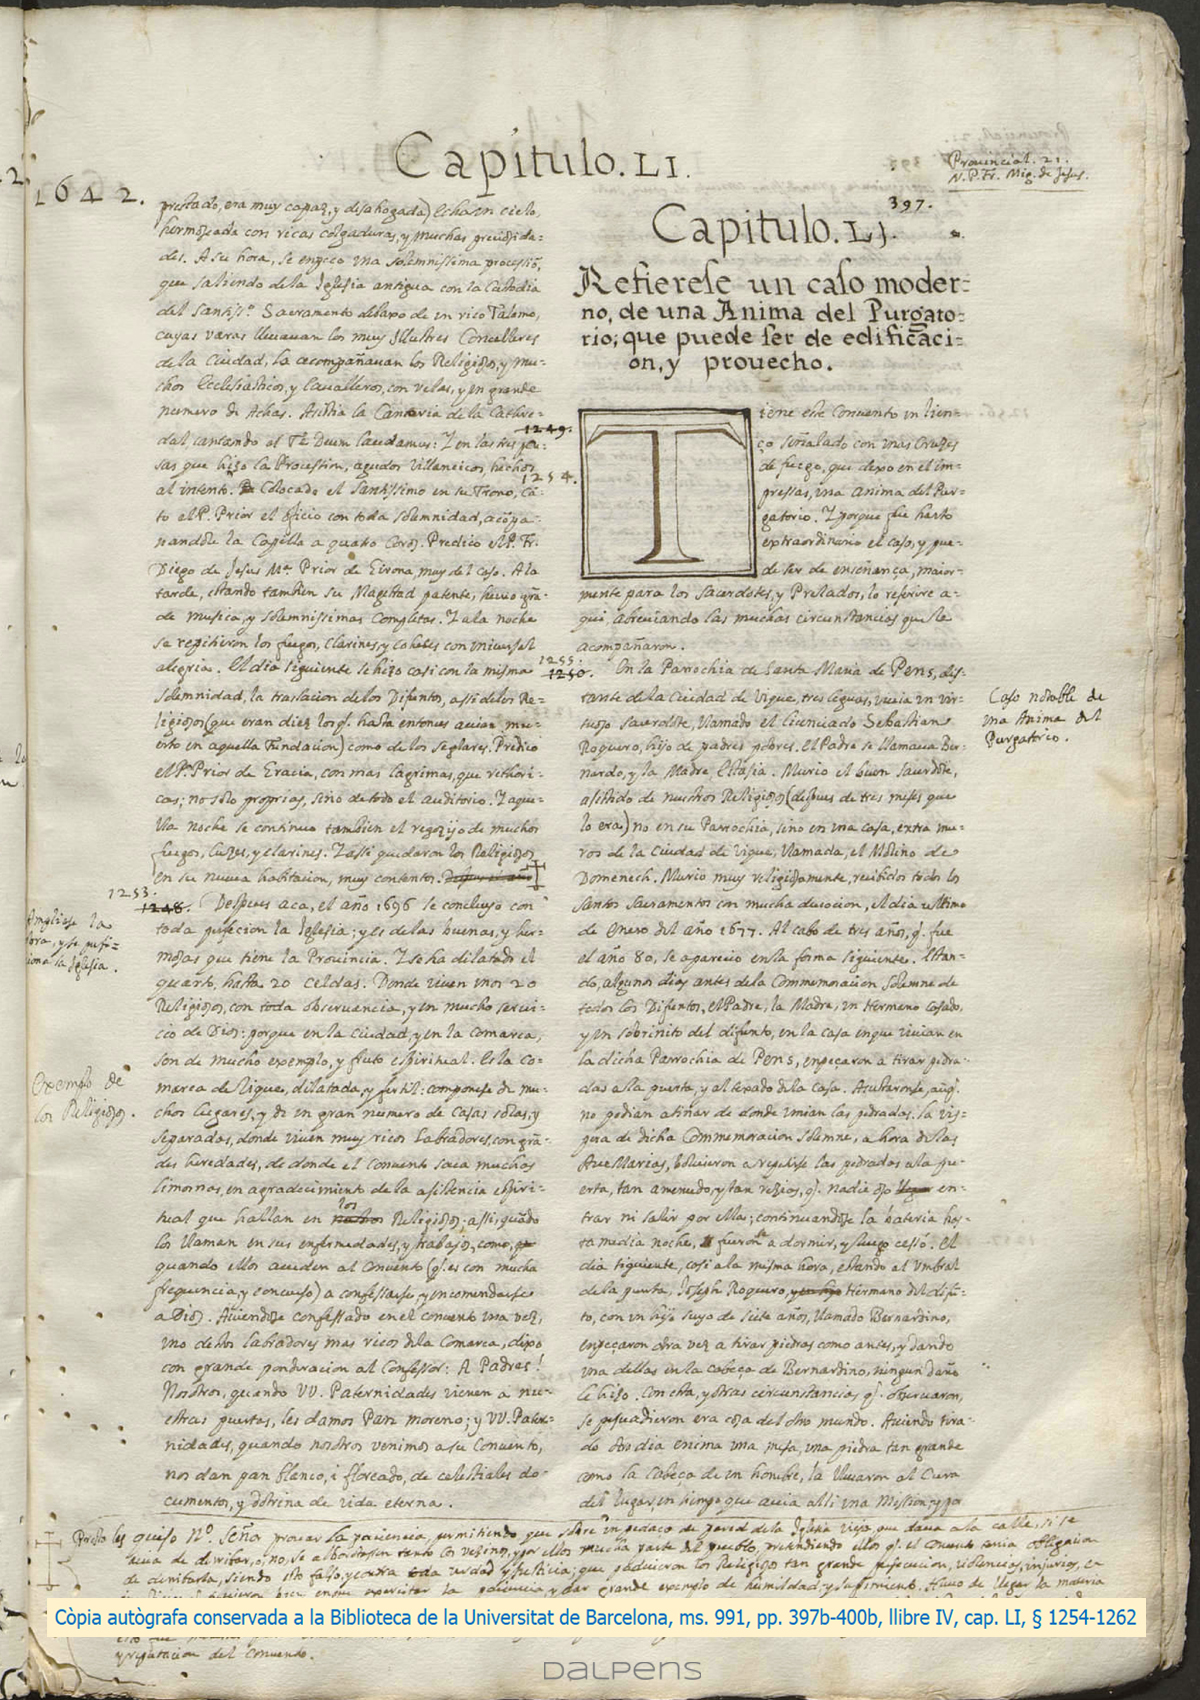 Capitulo. LI.
Prouincial. 21.
N. P. Fr. Mig. de Jesus.
1642.
prestado, era muy capaz, y desahogada) hechas en cielo,
hermoseada con ricas colgaduras, y muchas preciosida-
des. A su hora, se enpeço una solemnissima procession,
que saliendo de la Iglesia antigua con la Custodia
del Santiss.º Sacramento debaxo de un rico Talamo,
cuyas varas lleuauan los muy Illustres Concelleres
de la Ciudad, la acompañauan los Religiosos, y mu-
chos Eclesiasticos, y Caualleros, con velas, y en grande
numero de Achas. Asistia la Cantoria de la Cathre-
dal cantando el Te Deum laudamus: Y en las tres pau-
sas que hizo la Procession, agudos villancicos, hechos
al intento. Colocado el Santissimo en su Trono, cã-
to el P. Prior el oficio con toda solemnidad, acõpa-
nandole la Capilla a quatro Coros. Predico el P. Fr.
Diego de Jesus Mª. Prior de Girona, muy del caso. A la
tarde, estando tambien su Magestad patente, huuo grã-
de musica, y solemnissimas Completas. Y a la noche
se repitieron los fuegos, clarines, y cohetes con vniuersal
alegria. El dia siguiente se hizo casi con la misma
solemnidad, la traslacion de los Difuntos, assi de los Re-
ligiosos (que eran diez los q. hasta entonces auian mu-
erto en aquella Fundacion) como de los seglares. Predico
el P. Prior de Gracia, con mas lagrimas, que rethori-
cas; no solo proprias, sino de todo el auditorio. Y aque-
lla noche se continuo tambien el regozijo de muchos
fuegos, luzes, y clarines. Y assi quedaron los Religiosos
en su nueua habitacion, muy contentos.
1253.
1248. Despues aca, el año 1696 se concluyo con
toda perfecion la Iglesia; y es de las buenas, y her-
mosas que tiene la Prouincia. Y se ha dilatado el
quarto, hasta 20 celdas. Donde viuen vnos 20
Religiosos, con toda obseruancia, y en mucho serui-
cio de Dios: porque en la Ciudad, y en la comarca,
son de mucho exemplo, y fruto espiritual. Es la Co-
marca de Vique, dilatada, y fertil: componese de mu-
chos lugares, y de un gran numero de Casas solas, y
separadas, donde viuen muy ricos Labradores, con grã-
des heredades, de donde el conuento saca muchas
limosnas, en agradecimiento de la asistencia espiri-
tual que hallan en los Religiosos; assi quãdo
los llaman en sus enfermedades, y trabajos, como
quando ellos acuden al Conuento (q. es con mucha
frequencia, y concurso) a confessarse y encomendarse
a Dios. Auiendose confessado en el conuento una vez,
uno de los labradores mas ricos de la Comarca, dixo
con grande ponderacion al Confessor: A Padres!
Nosotros, quando VV. Paternidades vienen a nu-
estras puertas, les damos Pan moreno; y VV. Pater-
nidades, quando nosotros venimos a su Conuento,
nos dan pan blanco, i floreado, de celestiales do-
cumentos, y dotrina de vida eterna.
Ampliase la
obra, y se perfi-
ciona la Iglesia.
Exemplo de
los Religiosos.
397.
Capitulo. LI.
Refierese un caso moder-
no, de una Anima del Purgato-
rio; que puede ser de edificaci-
on, y prouecho.
1249.
1254. Tiene este Conuento un lien-
ço señalado con unas Cruzes
de fuego, que dexo en el im-
pressas, una anima del Pur-
gatorio. Y porque fue harto
extraordinario el caso, y pue-
de ser de enseñança, maior-
mente para los Sacerdotes, y Prelados, lo referire a-
qui, abreuiando las muchas circunstancias que le
acompañaron.
1255.
1250. En la Parrochia de Santa Maria de Pens, dis-
tante de la Ciudad de Vique, tres leguas, viuia un vir-
tuoso sacerdote, llamado el licenciado Sebastian
Roquero, hijo de padres pobres. El Padre se llamaua Ber-
nardo, y la Madre, Estasia. Murio el buen sacerdote,
asistido de nuestros Religiosos (despues de tres meses que
lo era) no en su Parrochia, sino en una casa, extra mu-
ros de la Ciudad de Vique, llamada, el Molino de
Domenech. Murio muy religiosamente, recibidos todos los
Santos Sacramentos con mucha deuocion, el dia ultimo
de Enero del año 1677. Al cabo de tres años, q. fue
el año 80, se aparecio en la forma siguiente. Estan-
do, algunos dias antes de la Commemoracion solemne de
todos los Difuntos, el Padre, la Madre, un hermano casado,
y un sobrinito del difunto, en la casa en que viuian en
la dicha Parrochia de Pens, enpeçaron a tirar pedra-
das a la puerta, y al texado de la casa. Asustaronse, aunq.
no podian atinar de donde venian las pedradas. La vis-
pera de dicha Commemoracion solemne, a hora de las
Aue Marias, boluieron a repetirse las pedradas a la pu-
erta, tan amenudo, y tan rezios, q. nadie oso en-
trar ni salir por ella; continuandose la bateria has-
ta media noche, fueronse a dormir, y luego cessó. El
dia siguiente, casi a la misma hora, estando al vmbral
de la puerta, Joseph Roquero, Hermano del difũ-
to, con un hijo suyo de siete años, llamado Bernardino,
enpeçaron otra vez a tirar piedras como antes, y dando
una dellas en la cabeça de Bernardino, ningun daño
le hizo. Con esta, y otras circunstancias q. obseruaron,
se persuadieron era cosa del otro mundo. Auiendo tira-
do otro dia encima una mesa, una piedra tan grande
como la Cabeça de un hombre, la lleuaron al Cura
del lugar, en tiempo que auia alli una Mission; y por
Caso notable de
una Anima del
Purgatorio.
Presto les quiso Nº. Señor prouar la paciencia, permitiendo que sobre un pedaço de pared de la Iglesia vieja, que daua a la calle, si se
auia de derribar, o no, se alborotassen tanto los vezinos, y por ellos mucha parte del pueblo, pretendiendo ellos q. el Conuento tenia obligacion
de derribarla, siendo esto falso, y contra toda verdad y Justicia; que padecieron los Religiosos tan grande persecucion, violencias, injurias,
Còpia autògrafa conservada a la Biblioteca de la Universitat de Barcelona, ms. 991, pp. 397b-400b, llibre IV, cap. LI, § 1254-1262
y reputacion del Conuento.
DALPENS